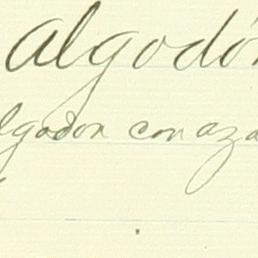 algodón
algodon con aza